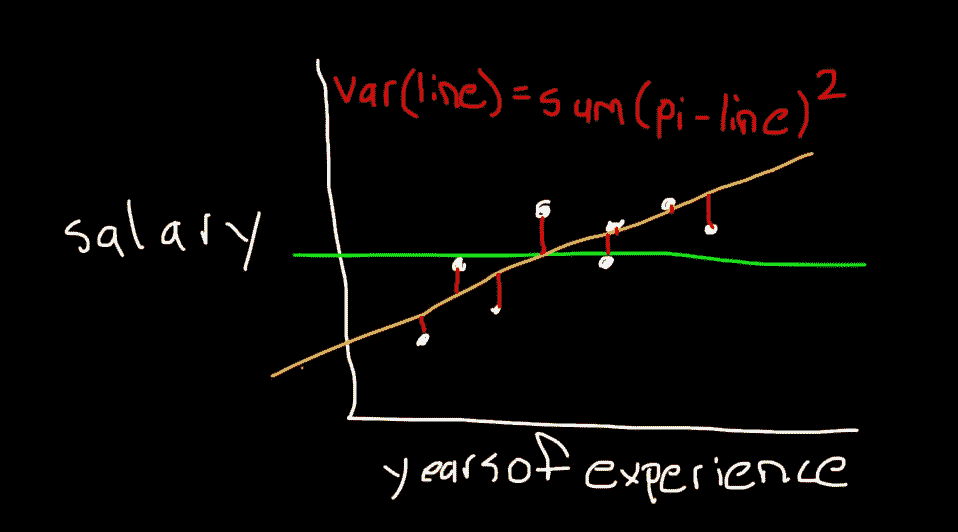 var(line) = sum(pi - line)^2
salary
years of experience